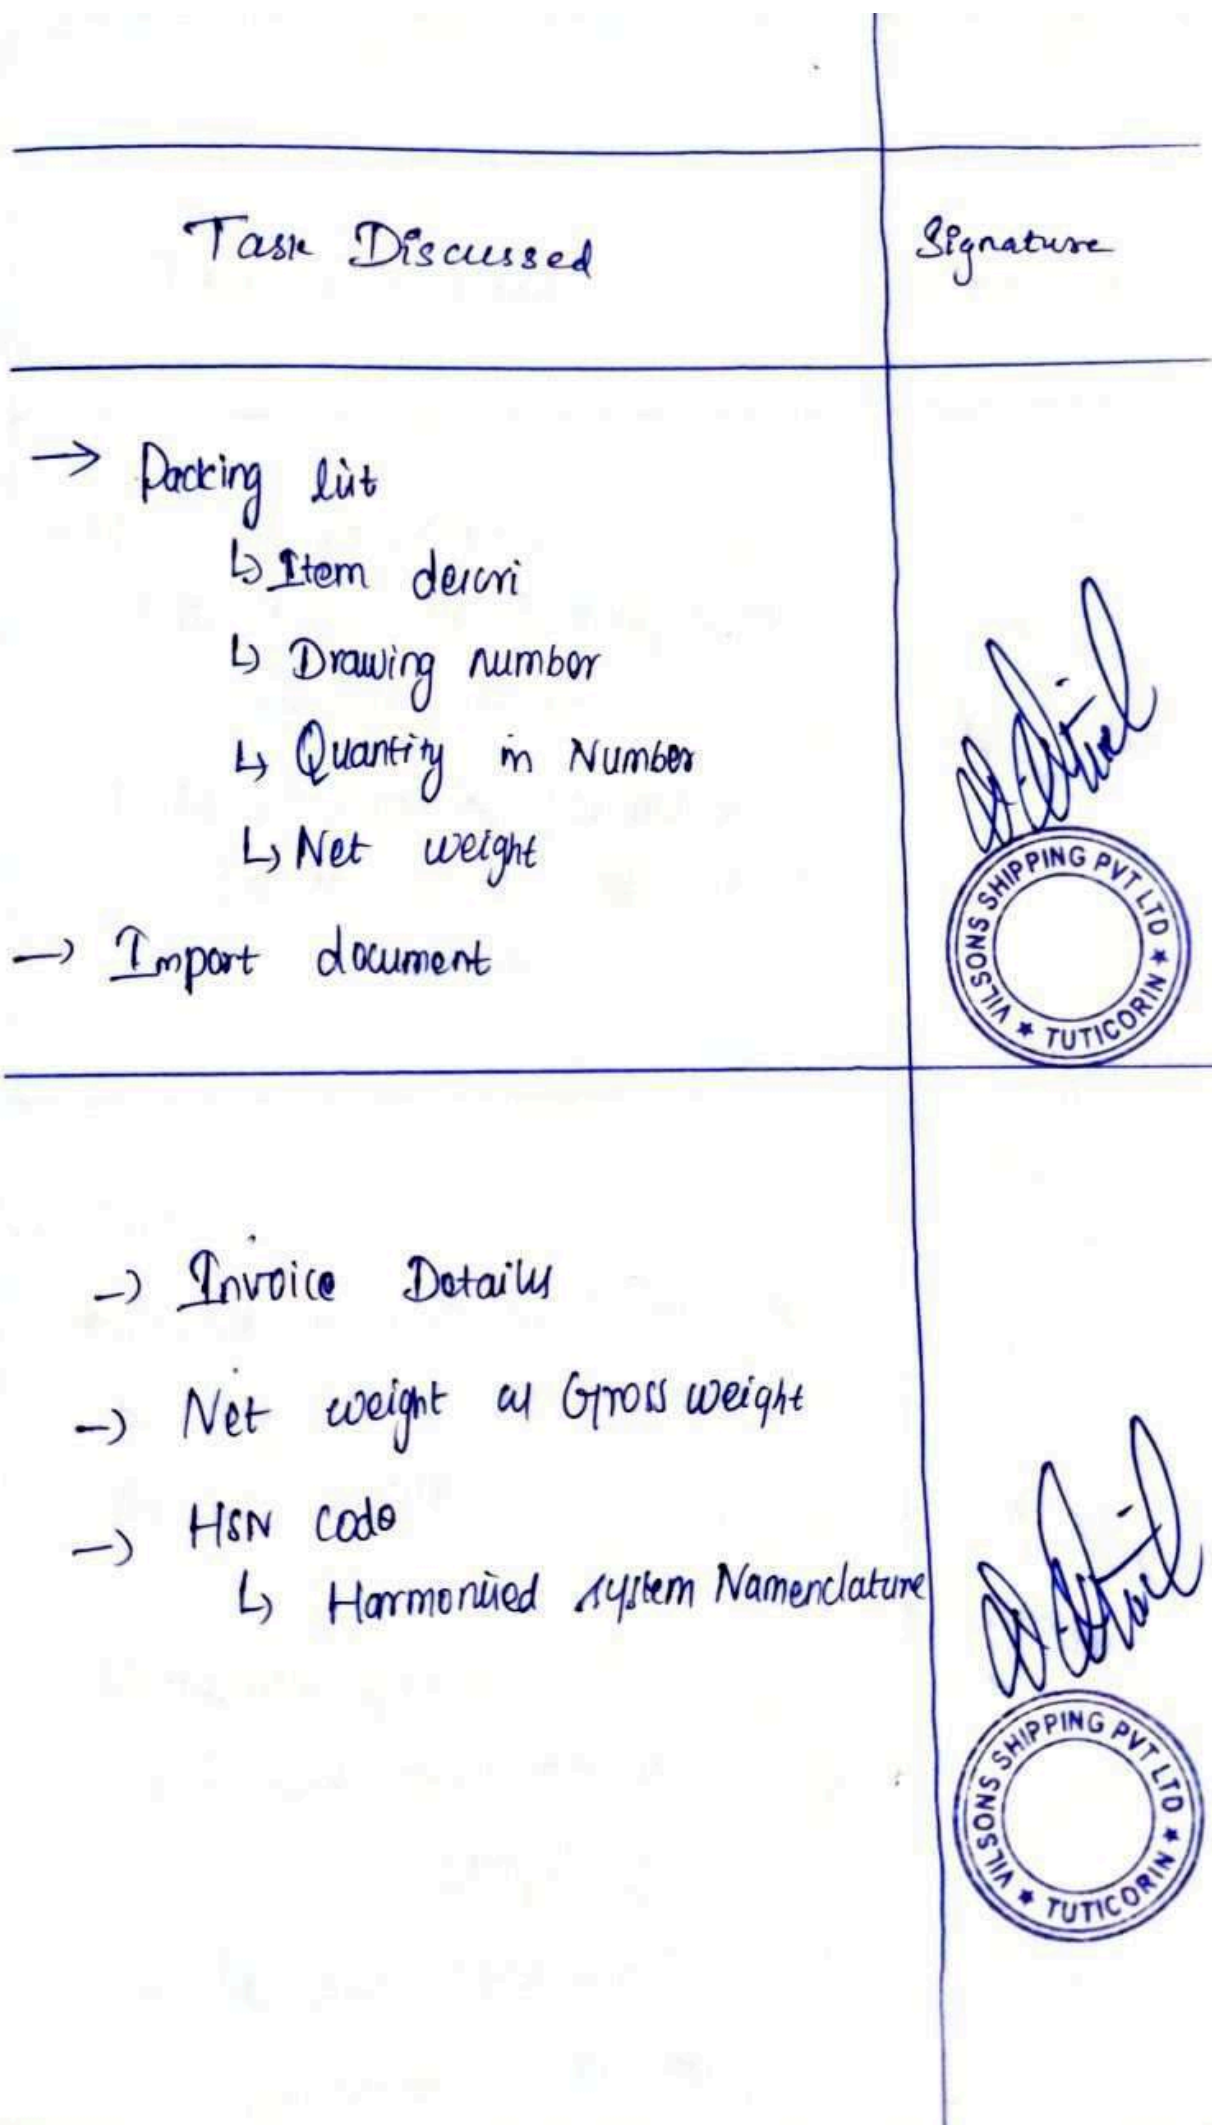 Task Discussed Signature
→ Packing list
↳ Item descri
↳ Drawing number
↳ Quantity in Number
↳ Net weight
→ Import document
VILSONS SHIPPING PVT LTD ★ TUTICORIN ★
→ Invoice Details
→ Net weight Gross weight
→ HSN Code
↳ Harmonised system Namenclature
VILSONS SHIPPING PVT LTD ★ TUTICORIN ★